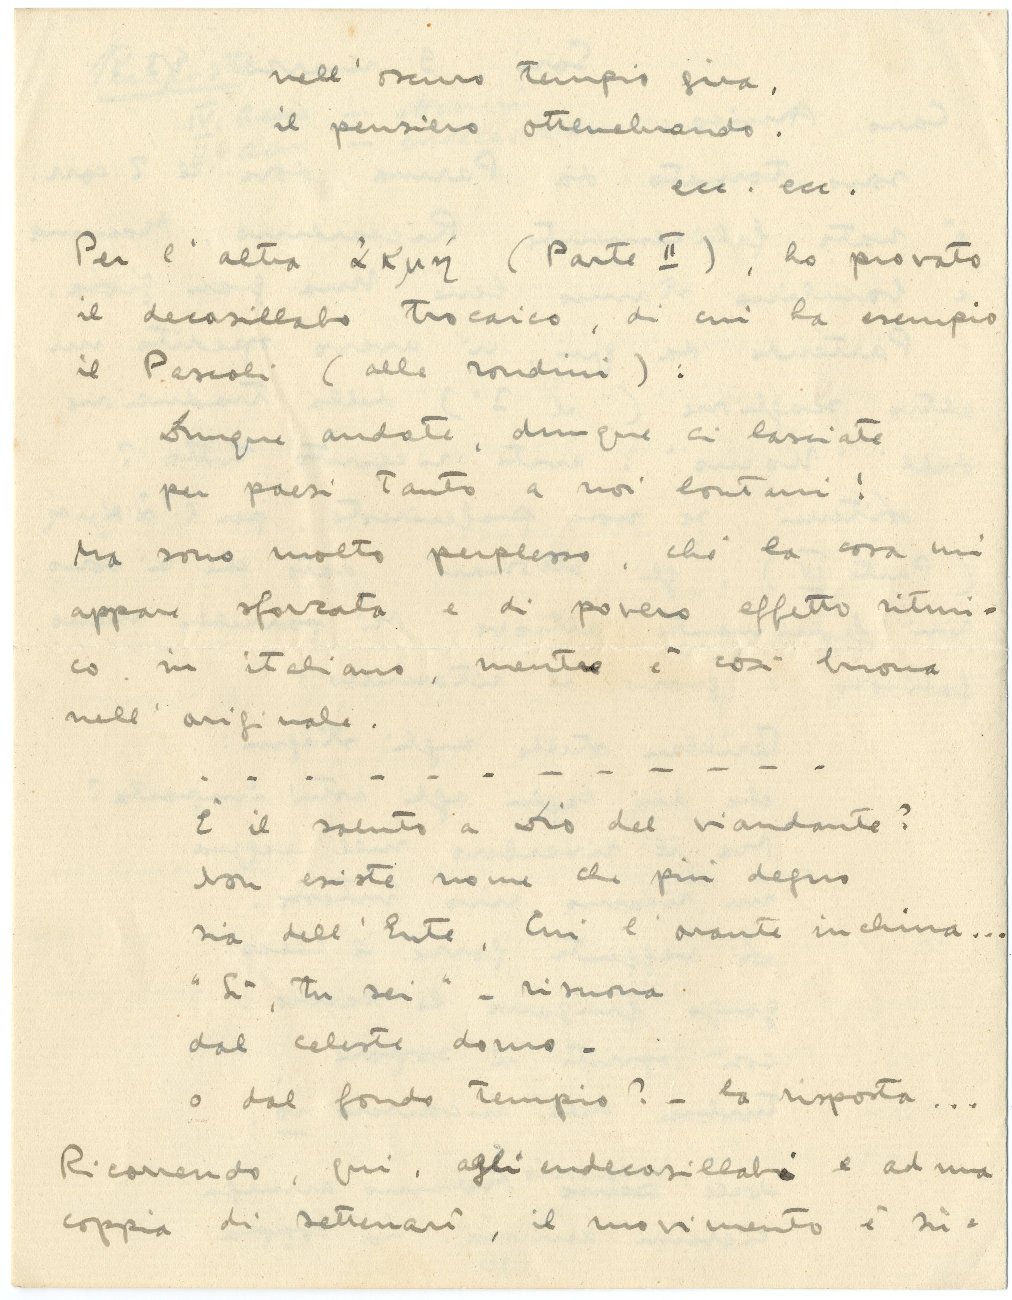 nell' oscuro tempio gira,
il pensiero ottenebrando.
ecc. ecc.
Per l' altra ἀκμή (Parte II), ho provato
il decasillabo trocaico, di cui ha esempio
il Pascoli (alle rondini):
Dunque andate, dunque ci lasciate
per paesi tanto a noi lontani!
Ma sono molto perplesso, chè la cosa mi
appare sforzata e di povero effetto ritmi-
co in italiano, mentre è così buona
nell' originale.
. - . - - - - - - - - -
È il saluto a Dio del viandante?
Non esiste nome che più degno
sia dell' Ente, Cui l' orante inchina...
"Sì, tu sei" - risuona
dal celeste domo -
o dal fondo tempio? - la risposta...
Ricorrendo, qui, agli endecasillabi e ad una
coppia di settenarî, il movimento è sù-